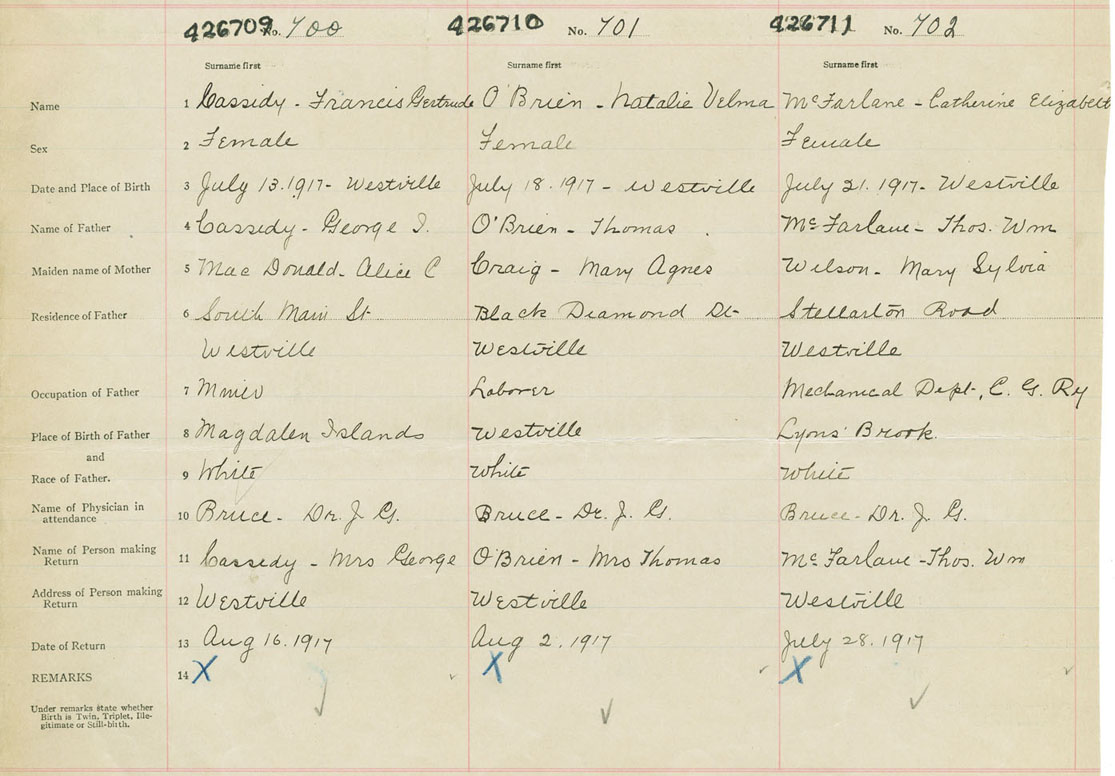 426709 No. 700 426710 No. 701 426711 No. 702
Surname first Surname first Surname first
Name 1 Cassidy - Francis Gertrude O'Brien - Natalie Velma McFarlane - Catherine Elizabeth
Sex 2 Female Female Female
Date and Place of Birth 3 July 13.1917 - Westville July 18.1917 - Westville July 21.1917 - Westville
Name of Father 4 Cassidy - George I. O'Brien - Thomas McFarlane - Thos. Wm
Maiden name of Mother 5 Mac Donald - Alice C Craig - Mary Agnes Wilson - Mary Sylvia
Residence of Father 6 South Main St Black Diamond St Stellarton Road
Westville Westville Westville
Occupation of Father 7 Miner Laborer Mechanical Dept, C. G. Ry
Place of Birth of Father 8 Magdalen Islands Westville Lyons' Brook.
and
Race of Father. 9 White White White
Name of Physician in
attendance 10 Bruce - Dr. J. G. Bruce - Dr. J. G. Bruce - Dr. J. G.
Name of Person making
Return 11 Cassedy - Mrs George O'Brien - Mrs Thomas McFarlane - Thos. Wm
Address of Person making
Return 12 Westville Westville Westville
Date of Return 13 Aug 16.1917 Aug 2.1917 July 28.1917
REMARKS 14 X X X
Under remarks state whether
Birth is Twin, Triplet, Ille-
gitimate or Still-birth.